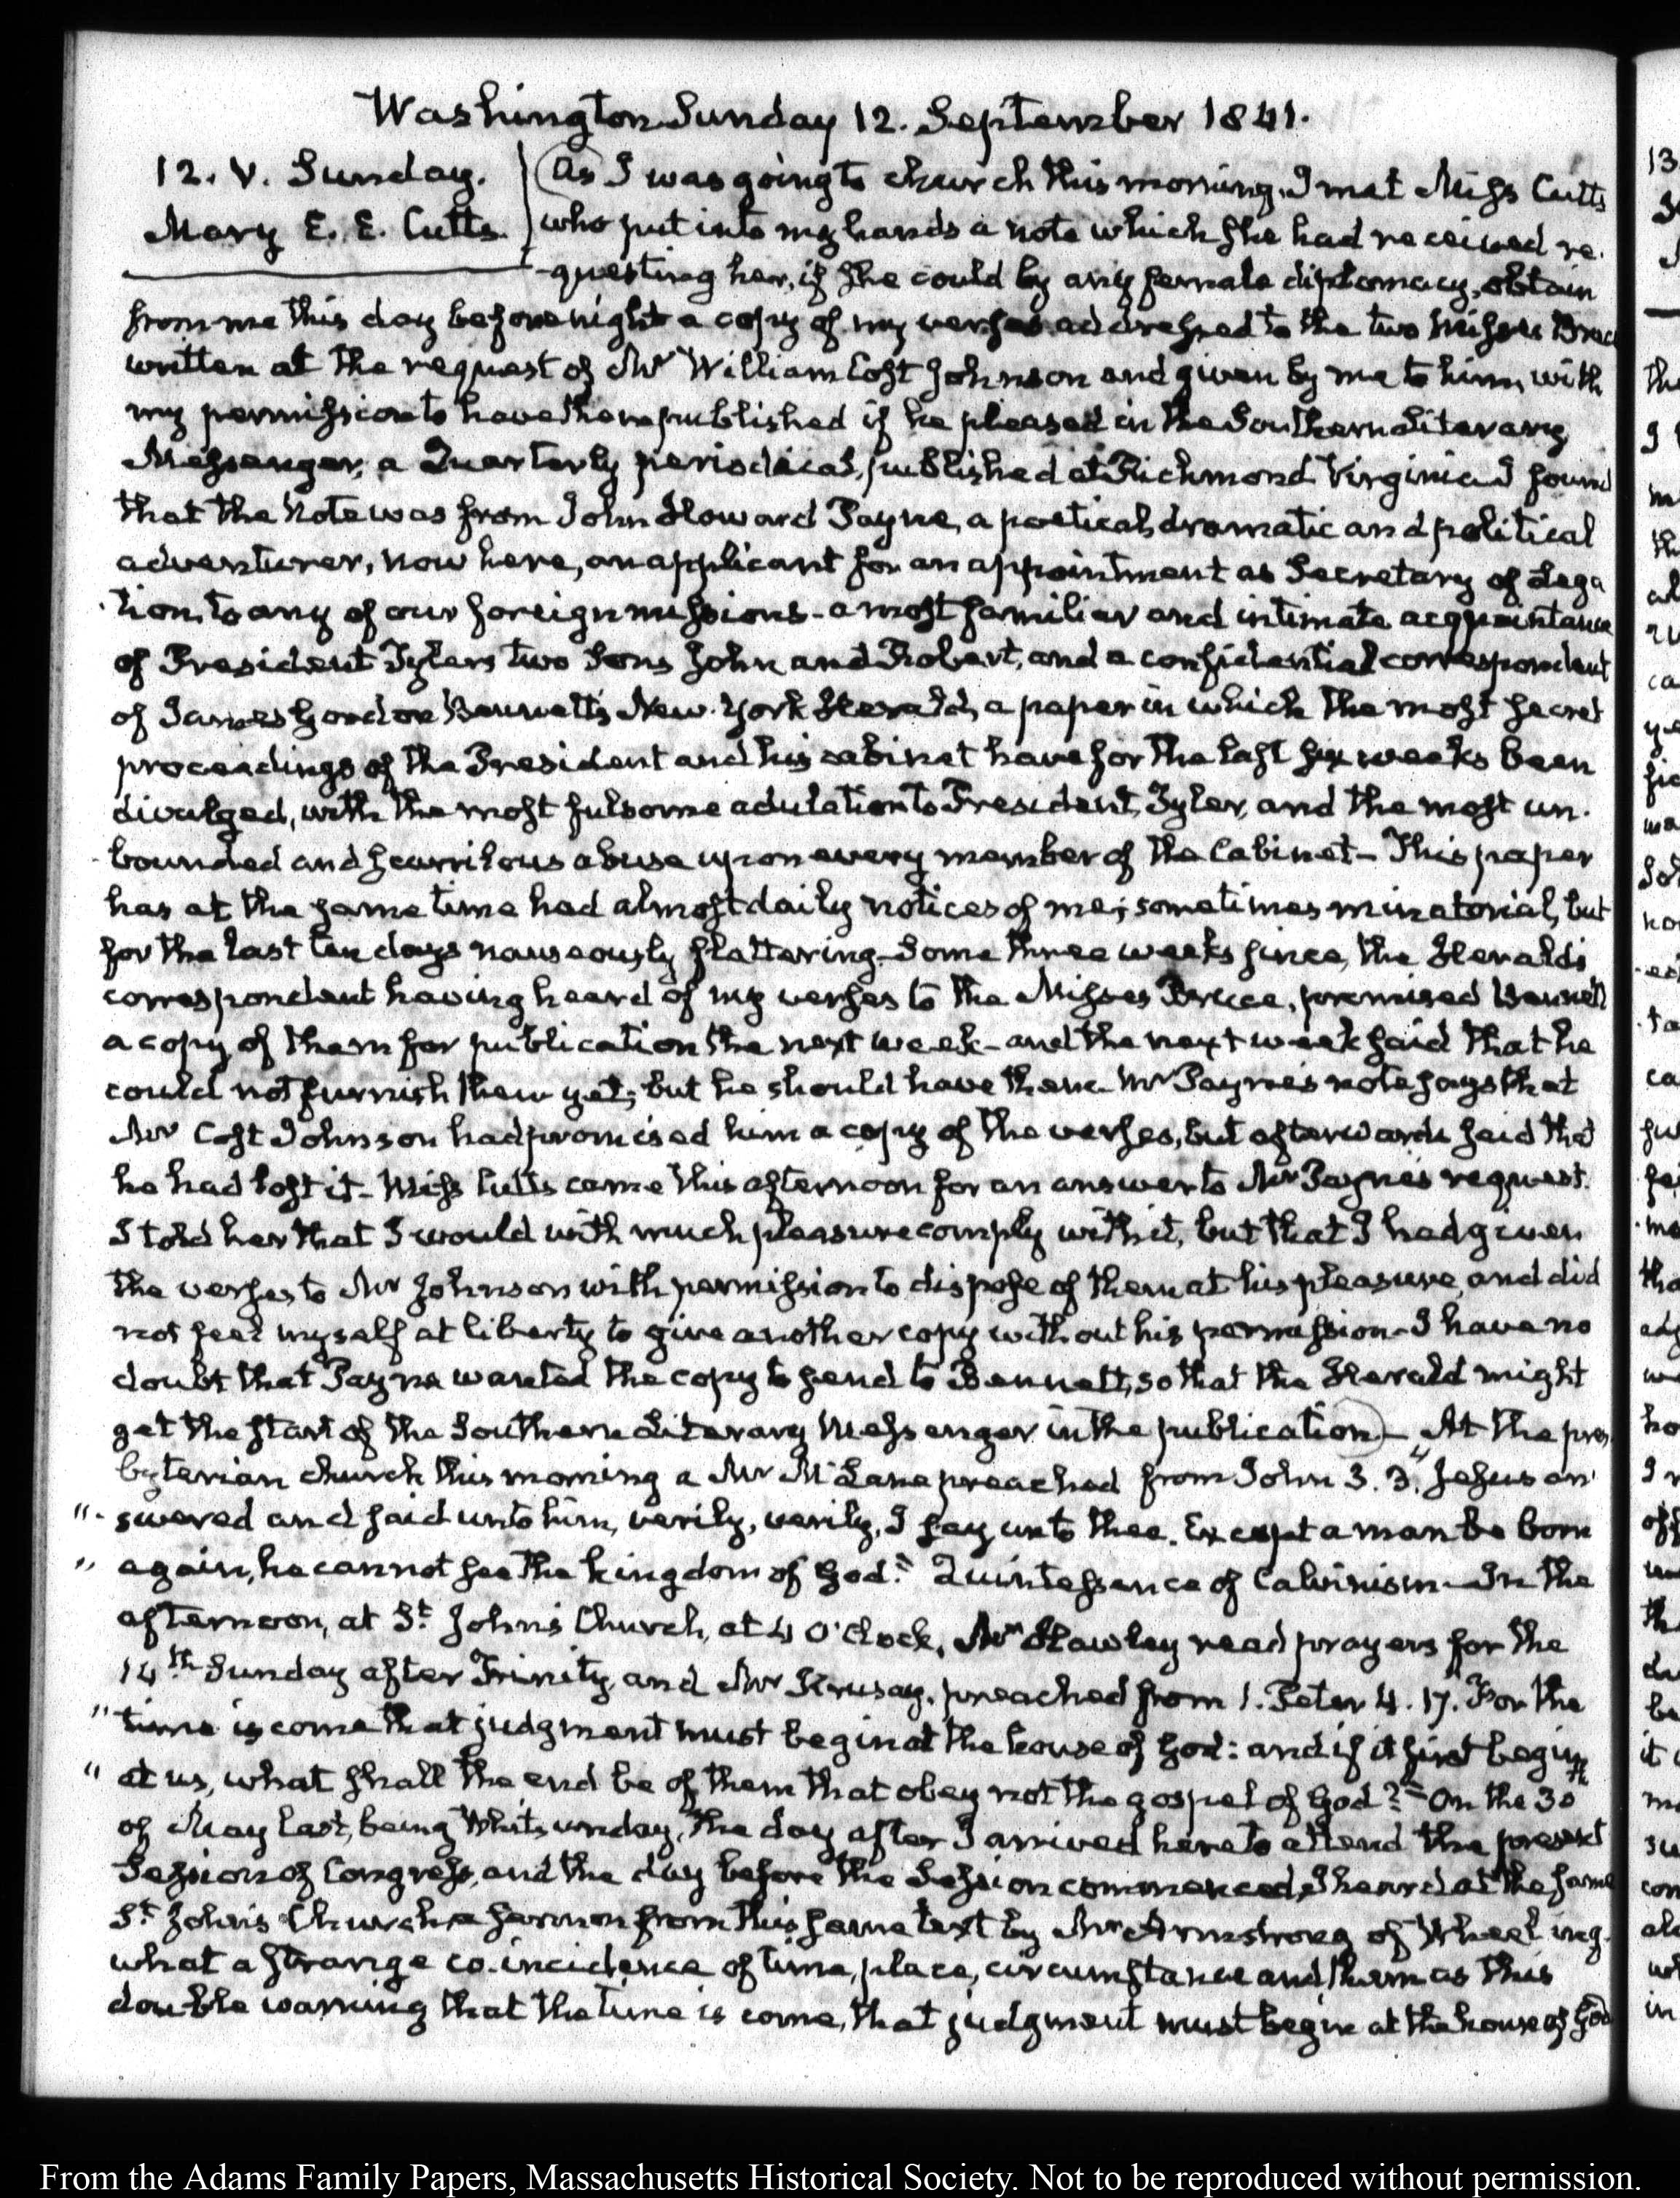 Washington Sunday 12. September 1841.
12. V. Sunday.
Mary E. E. Cutts.
As I was going to church this morning, I met Miss Cutts
who put into my hands a note which she had received re-
-questing her, if she could by any female diplomacy, obtain
from me this day before night a copy of my verses addressed to the two Misses Bruce
written at the request of Mr William Cost Johnson and given by me to him, with
my permission to have them published if he pleased in the Southern Literary
Messenger, a Quarterly periodical, published at Richmond Virginia I found
that the Note was from John Howard Payne, a poetical, dramatic and political
adventurer, now here, an applicant for an appointment as Secretary of Lega
-tion, to any of our foreign missions - a most familiar and intimate acquaintance
of President Tylers two Sons John and Robert, and a confidential correspondent
of James Gordon Bennett's New-York Herald, a paper in which the most secret
proceedings of the President and his cabinet have for the last six weeks been
divulged, with the most fulsome adulation to President Tyler, and the most un-
-bounded and scurrilous abuse upon every member of the Cabinet - This paper
has at the same time had almost daily notices of me; sometimes minatorial, but
for the last ten days nauseously flattering. Some three weeks since, the Herald's
correspondent having heard of my verses to the Misses Bruce, promised Bennett
a copy of them for publication the next week - and the next week said that he
could not furnish them yet; but he should have them. Mr Payne's note says that
Mr Cost Johnson had promised him a copy of the verses, but afterwards said that
he had lost it - Miss Cutts came this afternoon for an answer to Mr Payne's request.
I told her that I would with much pleasure comply with it, but that I had given
the verses to Mr Johnson with permission to dispose of them at his pleasure, and did
not feel myself at liberty to give another copy without his permission - I have no
doubt that Payne wanted the copy to send to Bennett, so that the Herald might
get the start of the Southern Literary Messenger in the publication - At the pres
byterian church this morning a Mr McLane preached from John 3. 3. "Jesus an
"-swered and said unto him, verily, verily, I say unto thee. Except a man be born
" again, he cannot see the kingdom of God." Quintessence of Calvinism - In the
afternoon, at St. John's Church, at 4 O'Clock, Mr Hawley read prayers for the
14th Sunday after Trinity, and Mr preached from 1. Peter 4. 17. For the
" time is come that judgment must begin at the house of God: and if it first begin
" at us, what shall the end be of them that obey not the gospel of God?" On the 30th
of May last, being Whitsunday, the day after I arrived here to attend the present
Session of Congress, and the day before the Session commenced, I heard at the same
St. John's Church a sermon from this same text by Mr Armstrong of Wheeling.
what a strange co-incidence of time, place, circumstance and theme as this
double warning that the time is come, that judgment must begin at the house of God
From the Adams Family Papers, Massachusetts Historical Society. Not to be reproduced without permission.